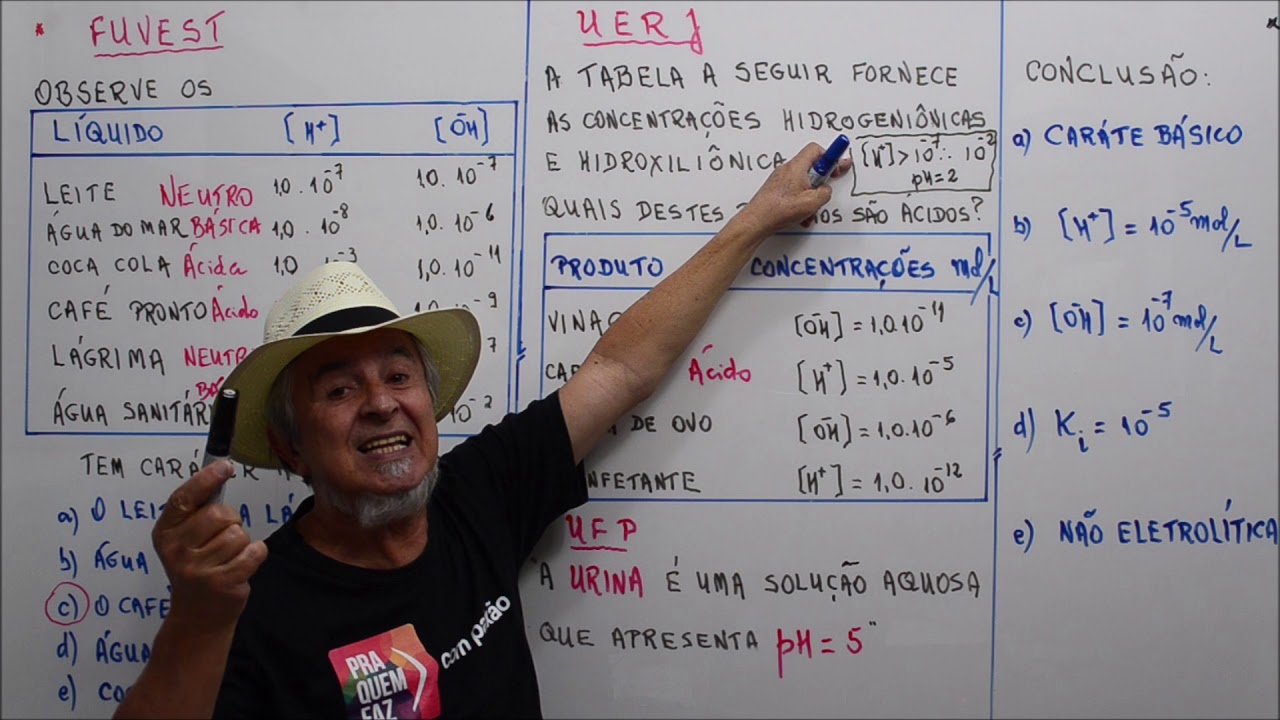 * FUVEST
OBSERVE OS
LÍQUIDO [H+] [OH-]
LEITE NEUTRO 1,0 . 10^-7 1,0 . 10^-7
ÁGUA DO MAR BÁSICA 1,0 . 10^-8 1,0 . 10^-6
COCA COLA Ácida 1,0 -3 1,0 . 10^-11
CAFÉ PRONTO Ácido -9
LÁGRIMA NEUTR 7
ÁGUA SANITÁRI BÁ 10^-2
TEM
a) O LEI A LÁ
b) ÁGUA
c) O CAFÉ
d) ÁGUA
e) CO
UERJ
A TABELA A SEGUIR FORNECE
AS CONCENTRAÇÕES HIDROGENIÔNICAS
E HIDROXILIÔNICA
[H+] > 10^-7 ∴ 10^-2
pH = 2
QUAIS DESTES SÃO ÁCIDOS?
PRODUTO CONCENTRAÇÕES mol/L
VINAG [OH-] = 1,0.10^-11
CAF Ácido [H+] = 1,0.10^-5
DE OVO [OH-] = 1,0.10^-6
NFETANTE [H+] = 1,0.10^-12
UFP
"A URINA É UMA SOLUÇÃO AQUOSA
QUE APRESENTA pH = 5"
CONCLUSÃO:
a) CARÁTE BÁSICO
b) [H+] = 10^-5 mol/L
c) [OH-] = 10^-7 mol/L
d) Ki = 10^-5
e) NÃO ELETROLÍTICA
PRA
QUEM
FAZ
com paixão